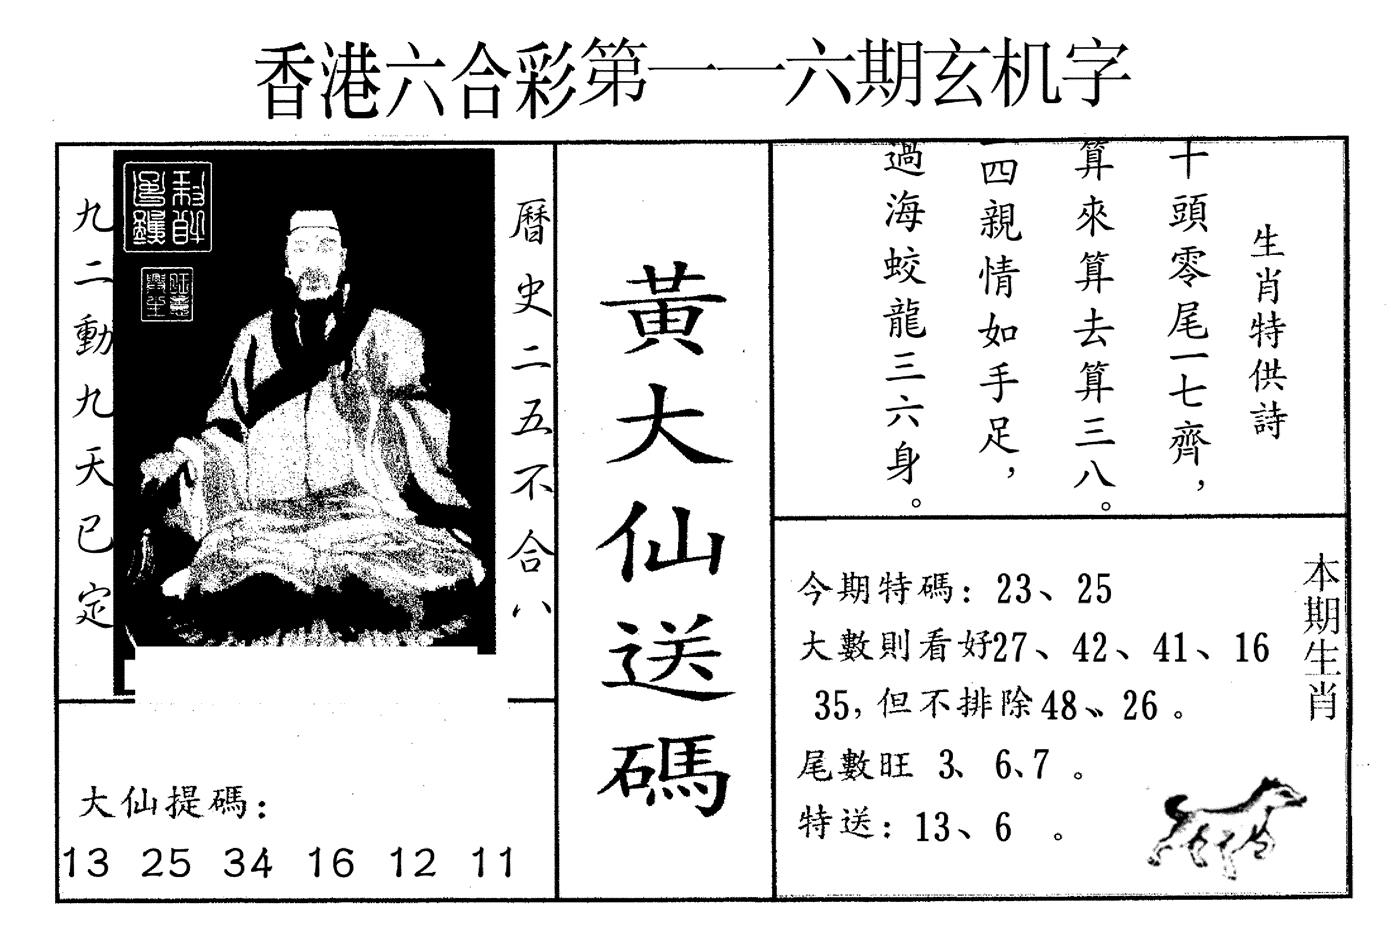 香港六合彩第一一六期玄机字
九二動九天已定
曆史二五不合八
大仙提碼：
13 25 34 16 12 11
黃大仙送碼
生肖特供詩
十頭零尾一七齊，
算來算去算三八。
四親情如手足，
過海蛟龍三六身。
本期生肖
今期特碼：23、25
大數則看好27、42、41、16
35，但不排除48、26。
尾數旺 3、6、7。
特送：13、6 。